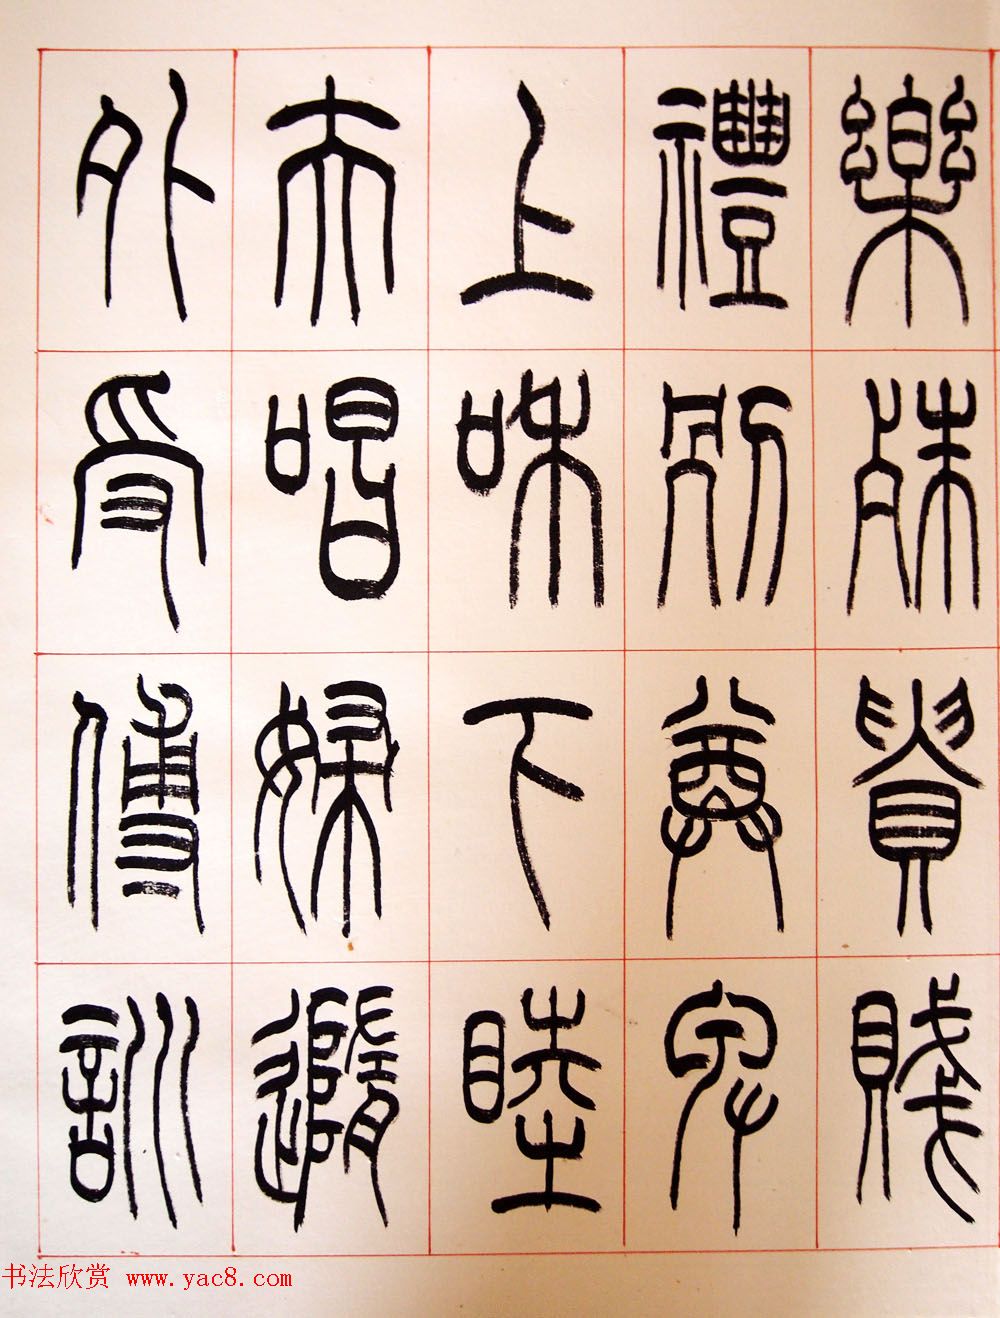 樂殊貴賤
禮別尊卑
上和下睦
夫唱婦隨
外受傅訓
书法欣赏 www.yac8.com